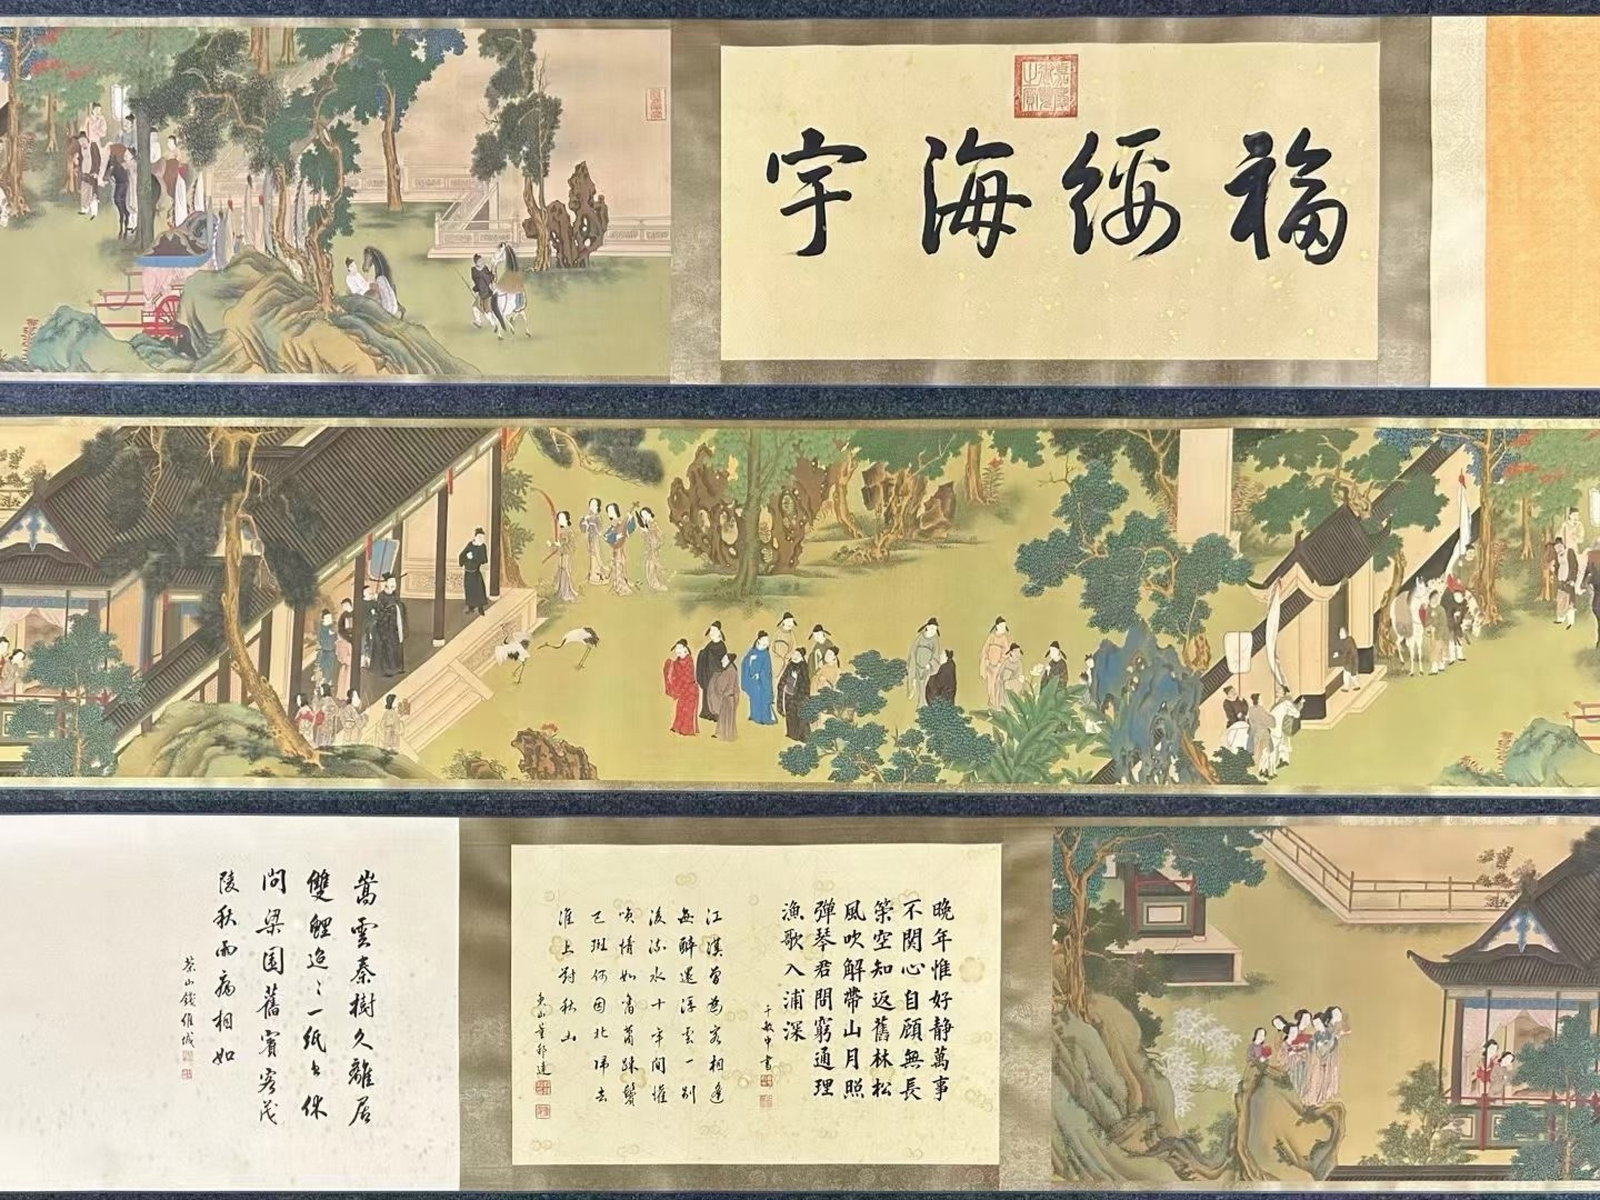 福綏海宇
嘉慶御覽之寶
晚年惟好静萬事
不関心自顧無長
策空知返舊林松
風吹解帶山月照
彈琴君問窮通理
漁歌入浦深
于敏中書
江漢曾為客相逢
每醉還浮雲一別
後流水十年間懽
咲情如舊蕭踈鬢
已斑何因北歸去
淮上對秋山
東山董邦達
嵩雲秦樹久離居
雙鯉迢〻一紙書休
問梁园舊賓客茂
陵秋雨病相如
茶山錢維城